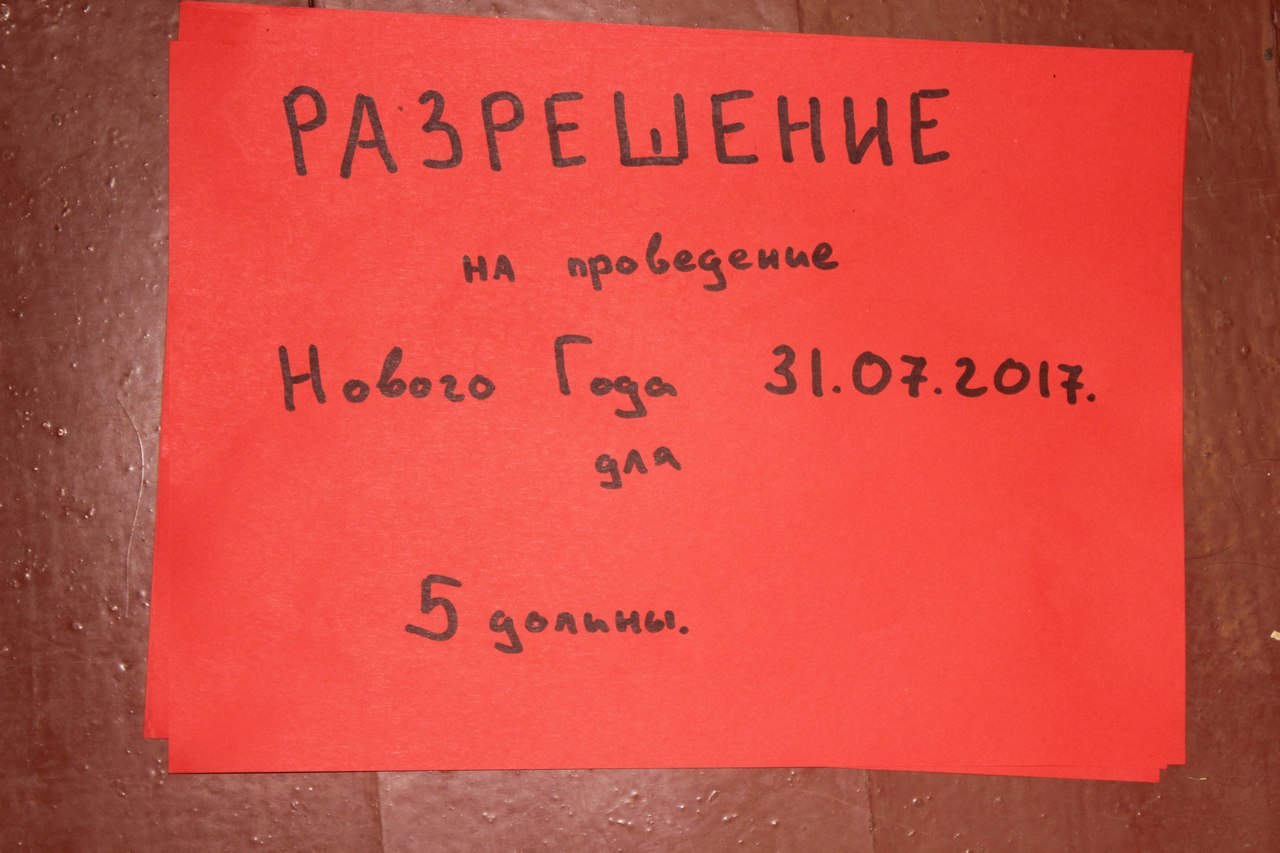 РАЗРЕШЕНИЕ
на проведение
Нового Года 31.07.2017.
для
5 долины.